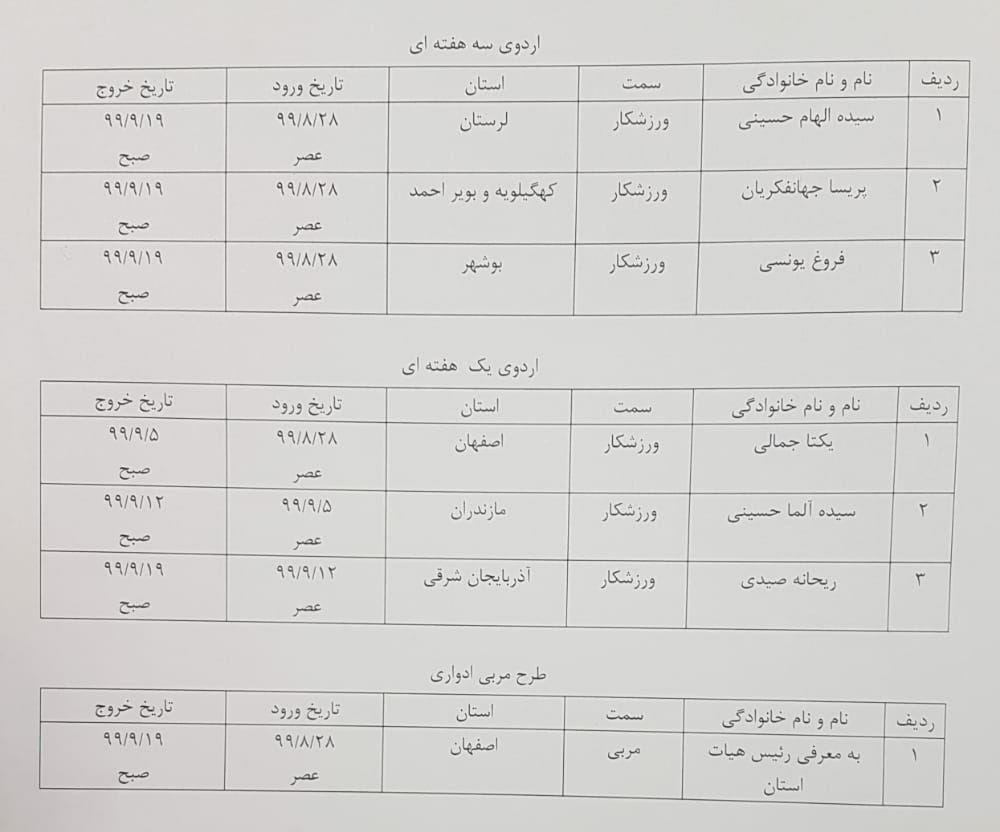 اردوی سه هفته ای
ردیف نام و نام خانوادگی سمت استان تاریخ ورود تاریخ خروج
۱ سیده الهام حسینی ورزشکار لرستان ۹۹/۸/۲۸ ۹۹/۹/۱۹
عصر صبح
۲ پریسا جهانفکریان ورزشکار کهگیلویه و بویر احمد ۹۹/۸/۲۸ ۹۹/۹/۱۹
عصر صبح
۳ فروغ یونسی ورزشکار بوشهر ۹۹/۸/۲۸ ۹۹/۹/۱۹
عصر صبح
اردوی یک هفته ای
ردیف نام و نام خانوادگی سمت استان تاریخ ورود تاریخ خروج
۱ یکتا جمالی ورزشکار اصفهان ۹۹/۸/۲۸ ۹۹/۹/۵
عصر صبح
۲ سیده آلما حسینی ورزشکار مازندران ۹۹/۹/۵ ۹۹/۹/۱۲
عصر صبح
۳ ریحانه صیدی ورزشکار آذربایجان شرقی ۹۹/۹/۱۲ ۹۹/۹/۱۹
عصر صبح
طرح مربی ادواری
ردیف نام و نام خانوادگی سمت استان تاریخ ورود تاریخ خروج
۱ به معرفی رئیس هیات مربی اصفهان ۹۹/۸/۲۸ ۹۹/۹/۱۹
استان عصر صبح